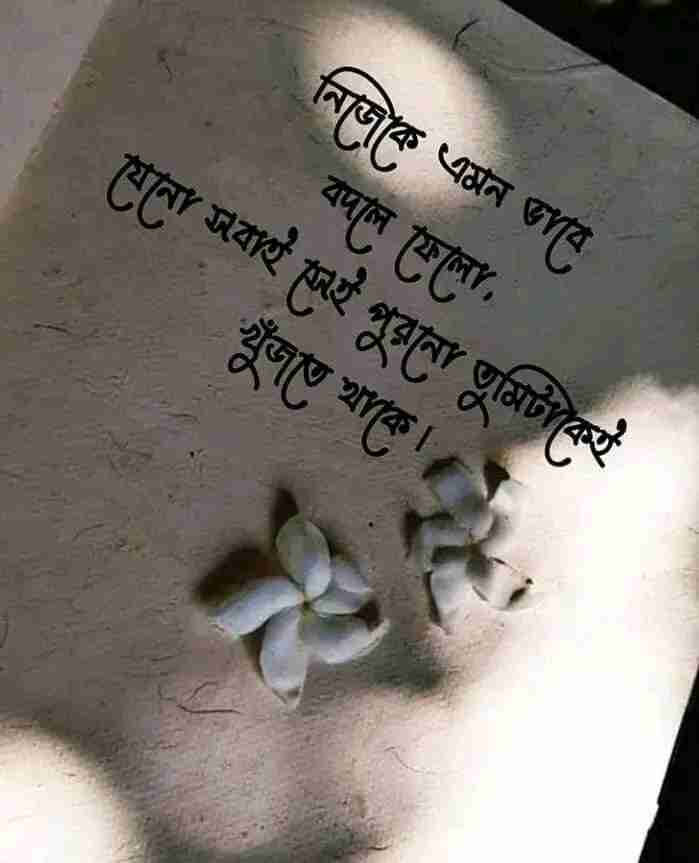 নিজেকে এমন ভাবে
বদলে ফেলো,
যেনো সবাই সেই পুরনো তুমিটাকেই
খুঁজতে থাকে।